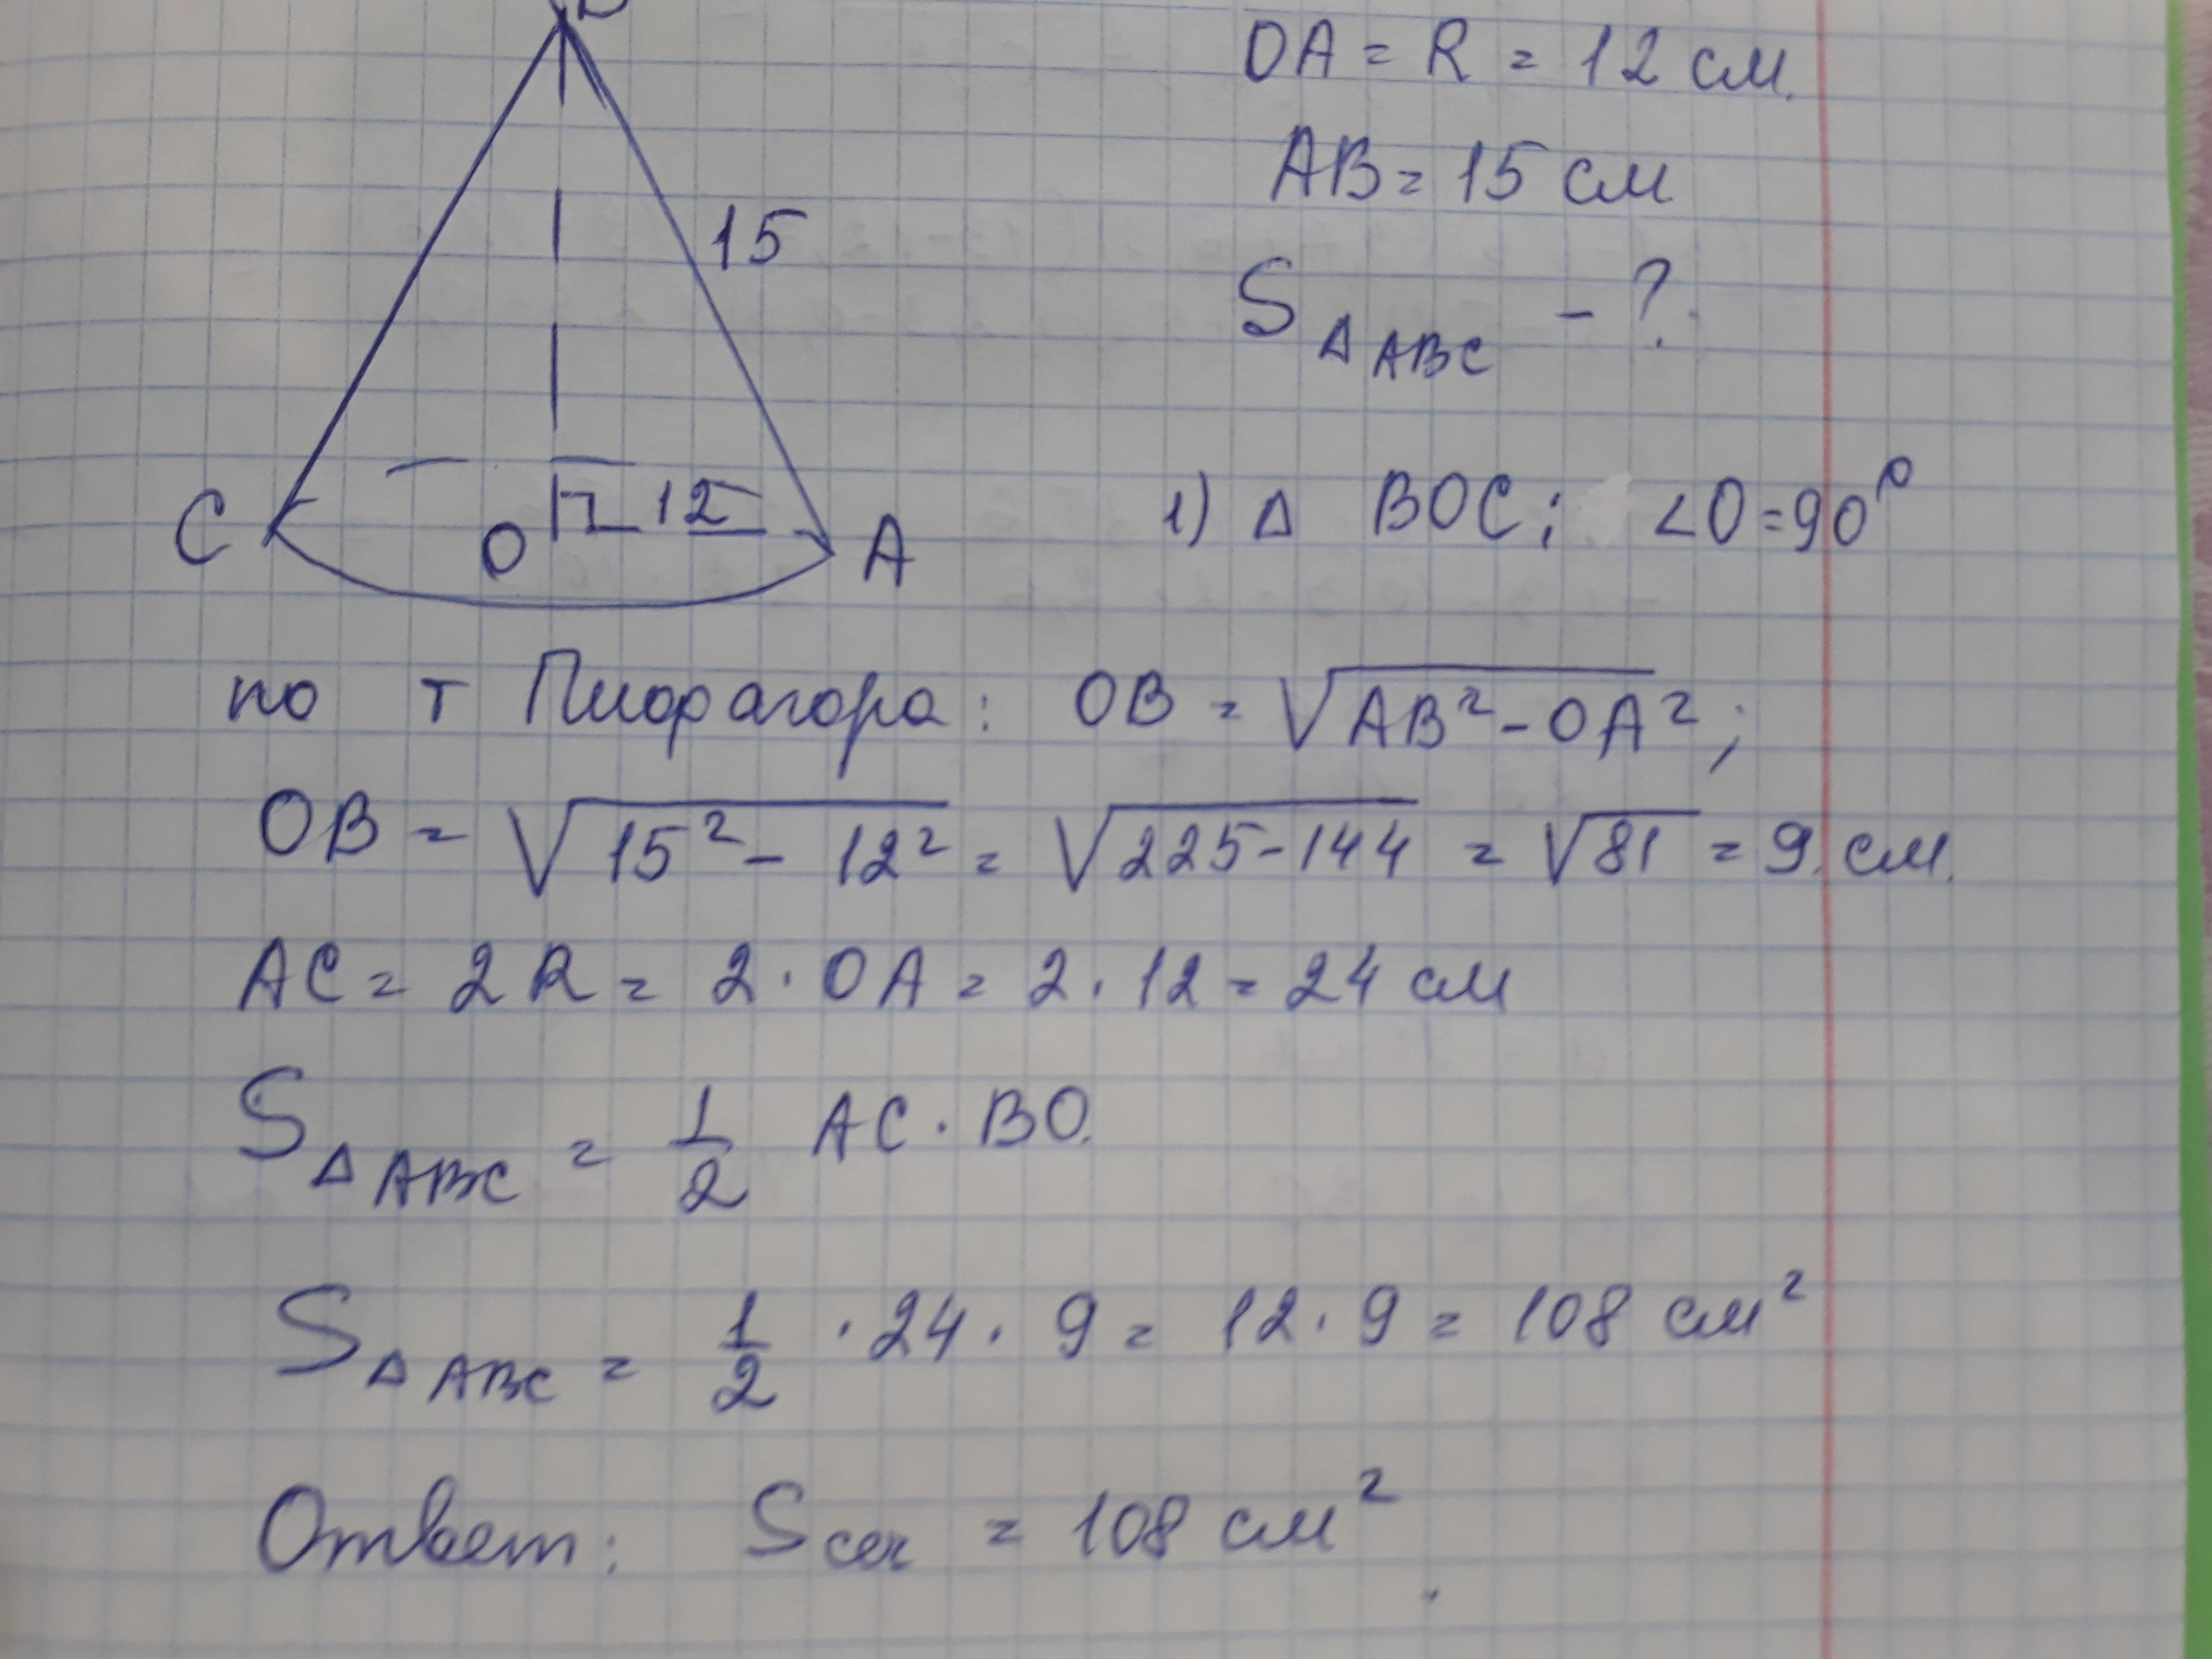 OA = R = 12 см.
AB = 15 см
S △ABC - ?
15
12
C
O
A
1) △ BOC; <O=90°
по т Пифагора: OB = √AB² - OA²;
OB = √15² - 12² = √225-144 = √81 = 9 см.
AC = 2R = 2 · OA = 2 · 12 = 24 см
S △ABC = 1/2 AC · BO.
S △ABC = 1/2 · 24 · 9 = 12 · 9 = 108 см²
Ответ: S сеч = 108 см².